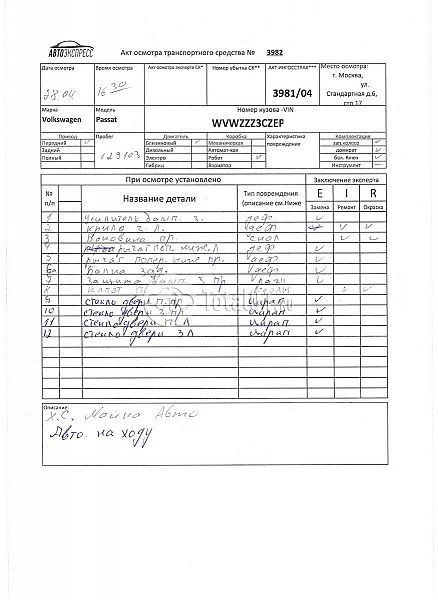 АВТОЭКСПРЕСС
Акт осмотра транспортного средства № 3982
Дата осмотра Время осмотра Акт осмотра эксперта СК* Номер убытка СК** АКТ ИНГОССТРАХ*** Место осмотра:
г. Москва,
ул.
Стандартная д.6,
стр.17
28.04 16 30 3981/04
Марка Модель Номер кузова -VIN
Volkswagen Passat WVWZZZ3CZEP
Привод Пробег Двигатель Коробка Характеристика повреждения Комплектация
Передний ✓ Бензиновый ✓ Механическая зап.колесо ✓
Задний Дизельный Автомат-кая домкрат ✓
Полный 129103 Электро Робот ✓ бал. Ключ ✓
Гибрид Вариатор Инструмент —
№ п/п При осмотре установлено Заключение эксперта
Название детали Тип повреждения (описание см.Ниже E I R
Замена Ремонт Окраска
1 Усилитель бамп. з. деф ✓
2 крыло з. Л. деф ✓ ✓
3 пр. ✓ ✓
4 рычаг поп. ниж. Л деф ✓
5 рычаг попер. ниж пр. деф ✓
6а Балка зад. деф ✓
7 Защита бамп. з пр ✓
8 капот ✓ ✓
9 стекло двери п. пр царап ✓
10 стекло двери з. пр царап ✓
11 стекло двери п. Л царап ✓
12 стекло двери з Л царап ✓
Описание:
Х.С. Майна Авто
Авто на ходу